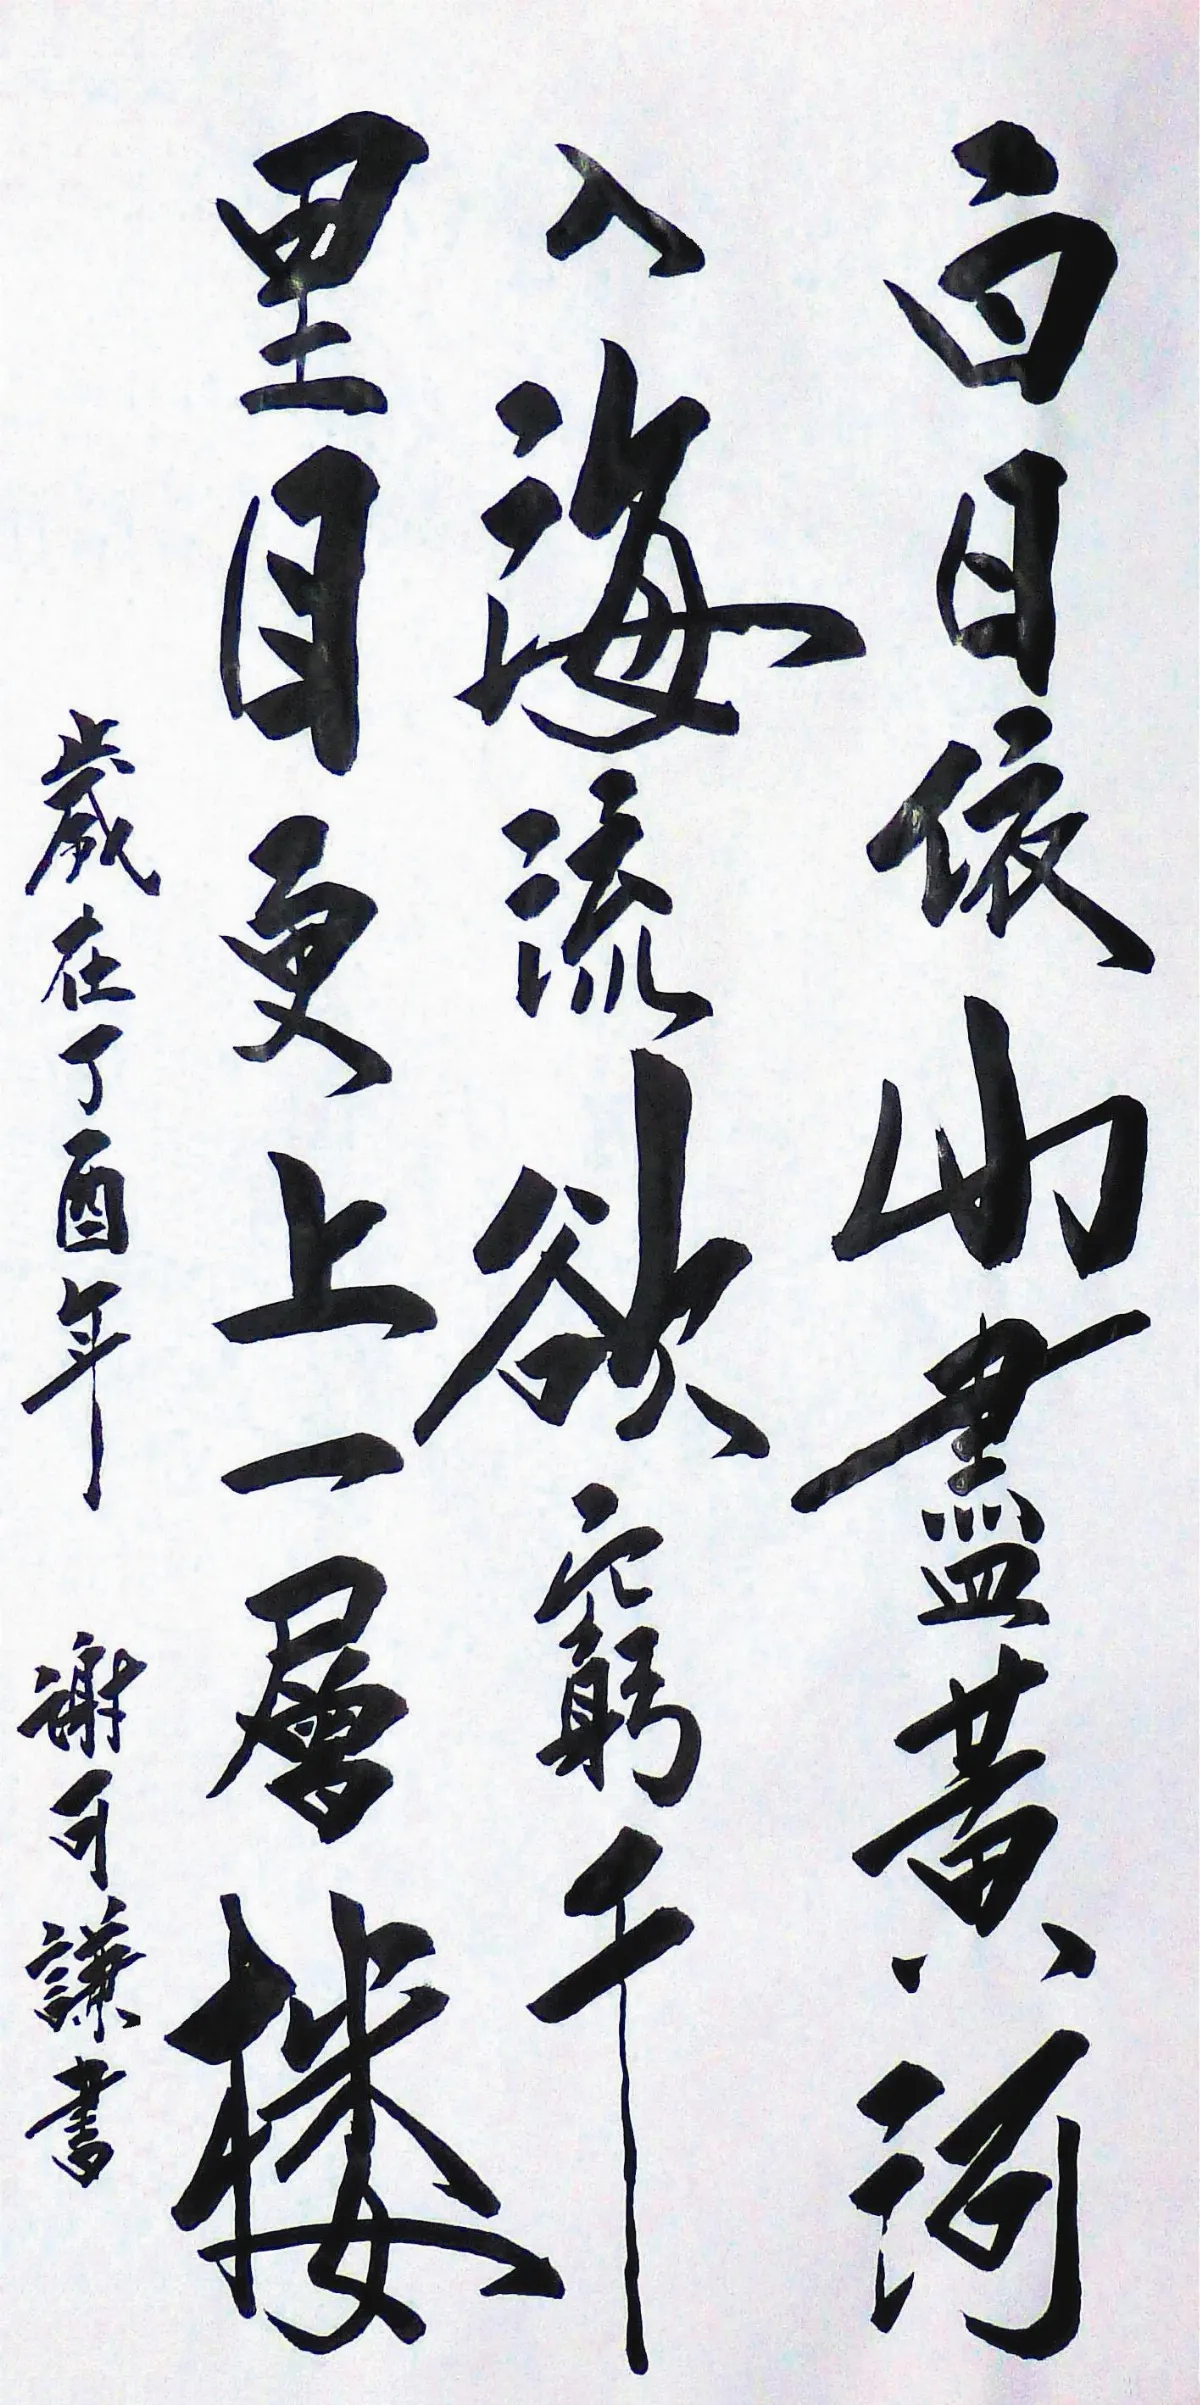 白日依山盡黃河
入海流欲窮千
里目更上一層楼
歲在丁酉年 謝可謙書